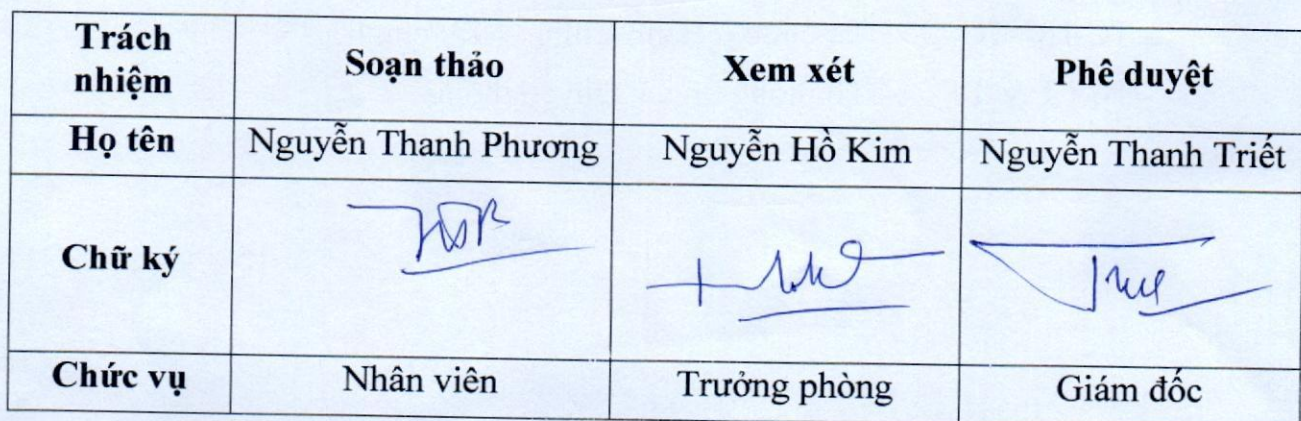 Trách nhiệm Soạn thảo Xem xét Phê duyệt
Họ tên Nguyễn Thanh Phương Nguyễn Hồ Kim Nguyễn Thanh Triết
Chữ ký
Chức vụ Nhân viên Trưởng phòng Giám đốc